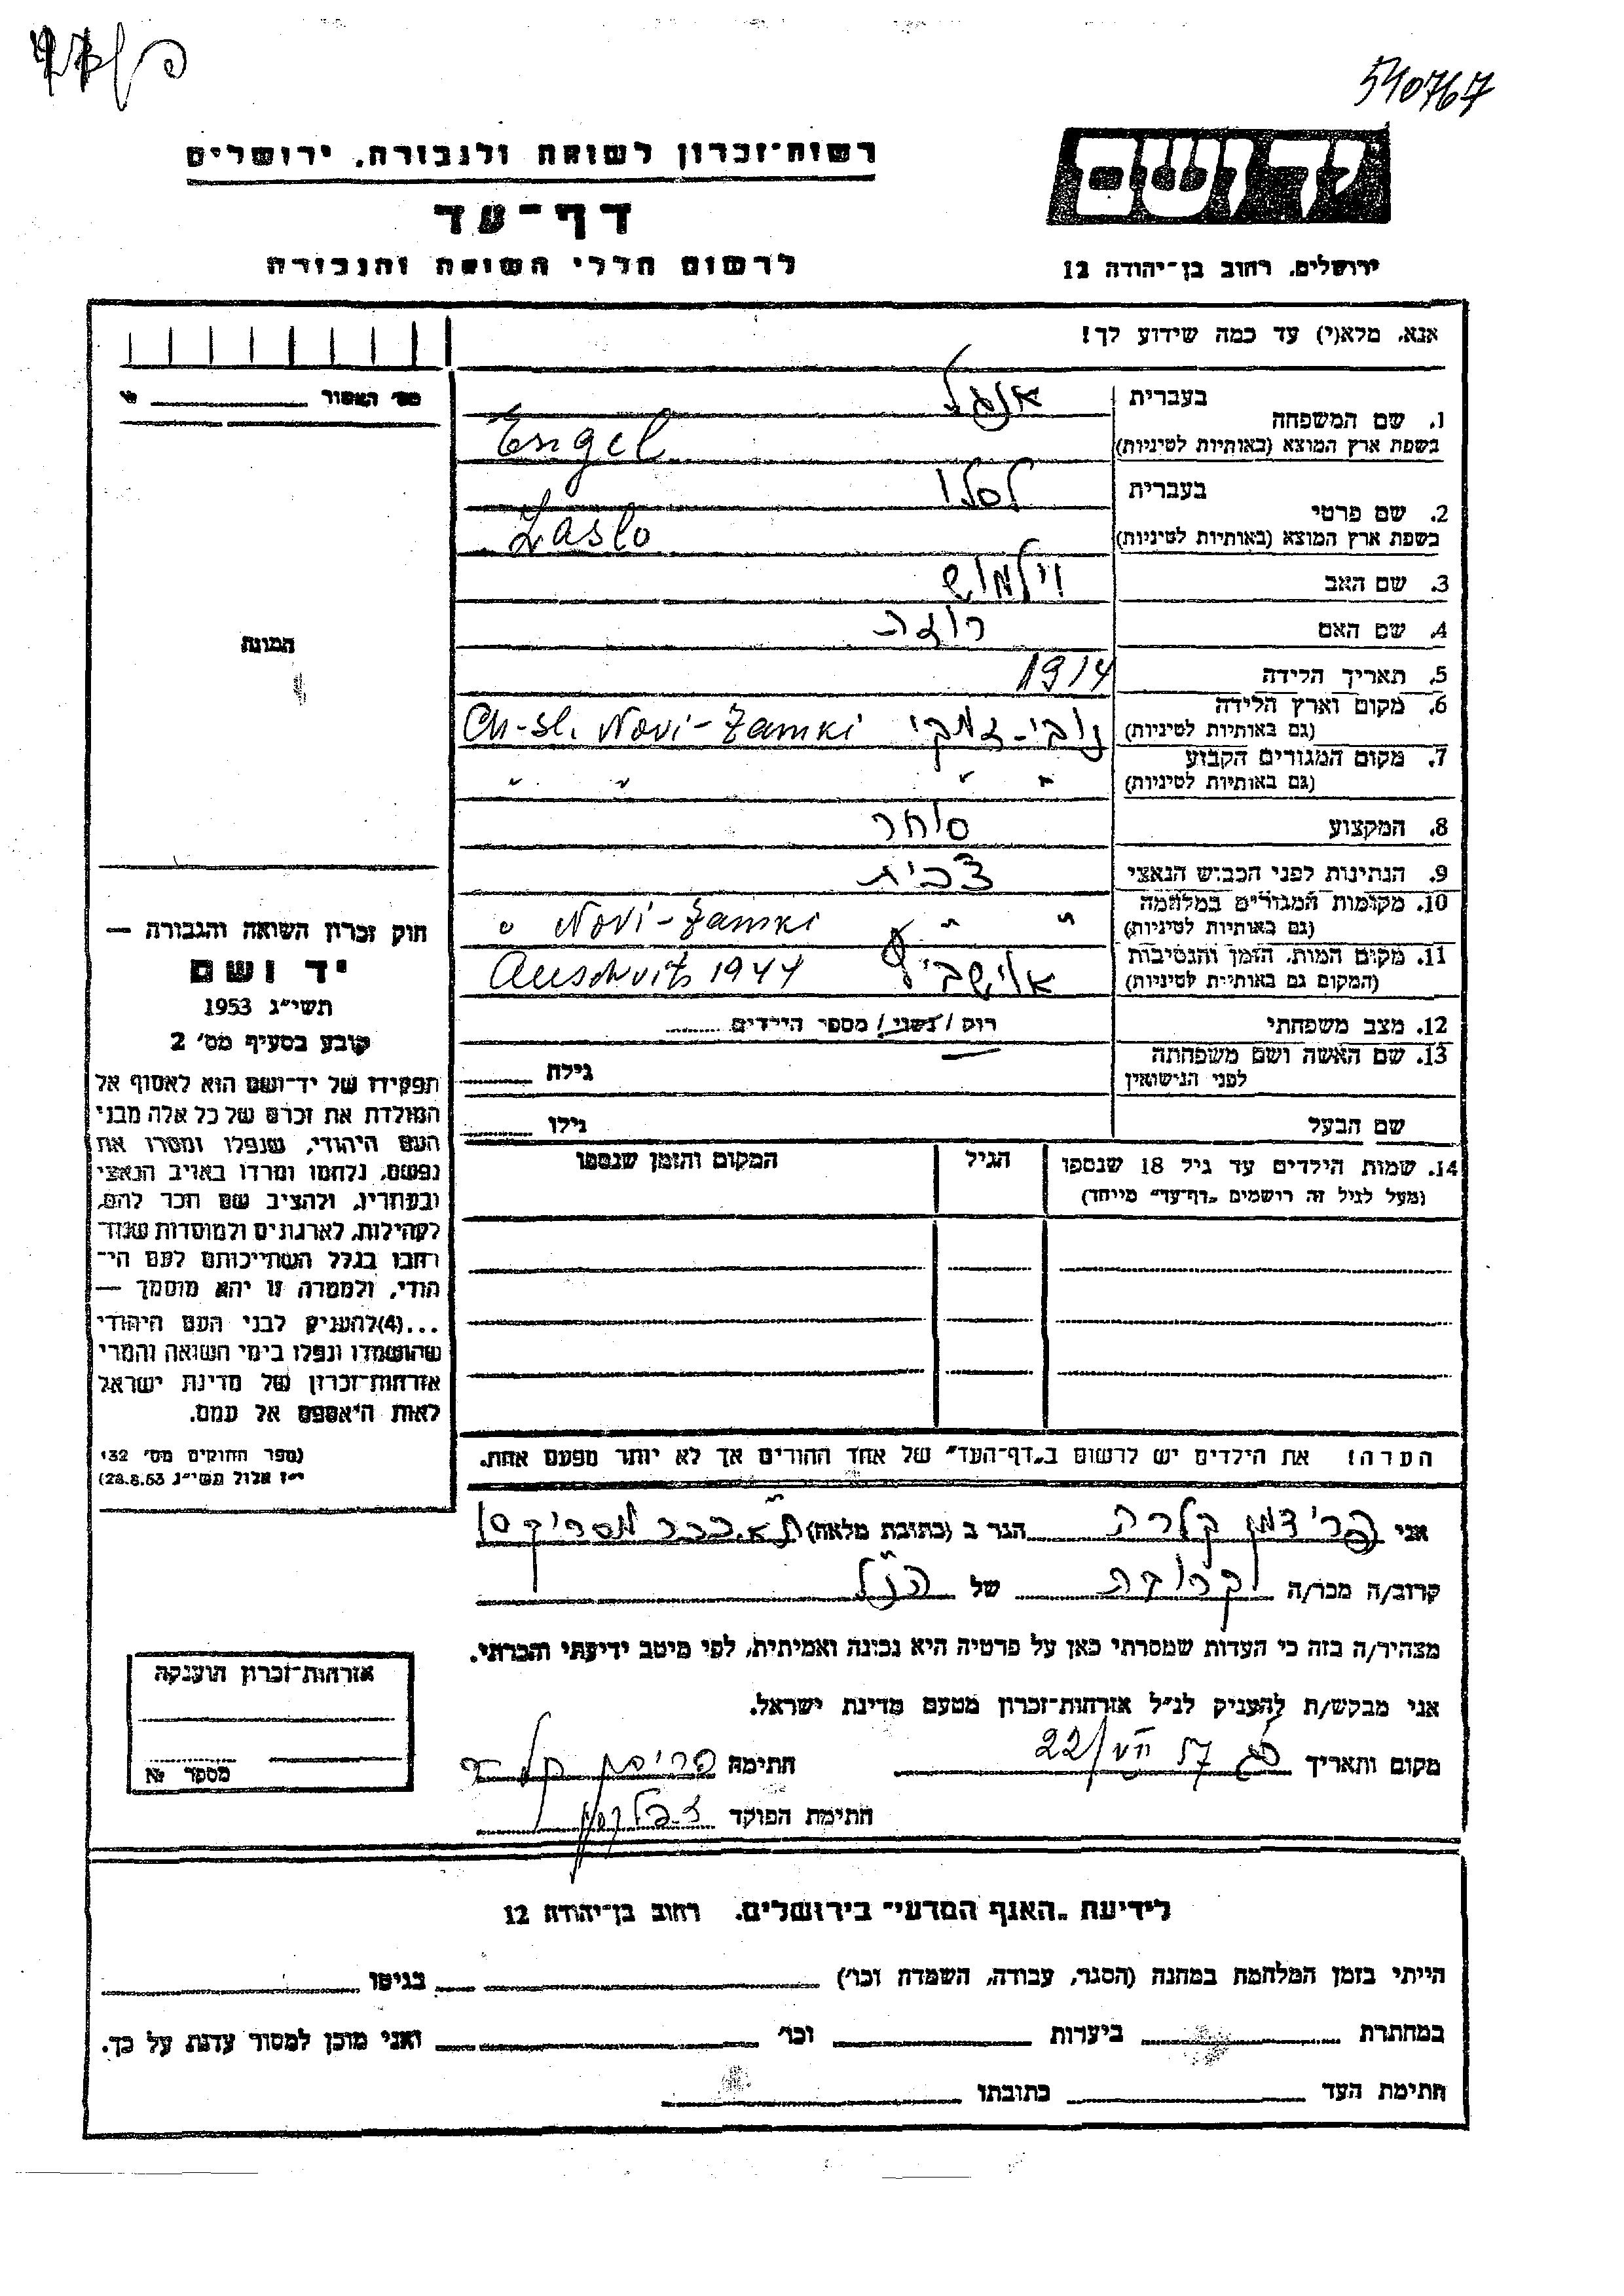 540767
יד ושם
רשות־זכרון לשואה ולגבורה, ירושלים
דף־עד
לרשום חללי השואה והגבורה
ירושלים, רחוב בן־יהודה 12
אנא, מלא(י) עד כמה שידוע לך!
מס׳ האסור
1. שם המשפחה
בעברית אנגל
בשפת ארץ המוצא (באותיות לטיניות) Engel
2. שם פרטי
בעברית לסלו
בשפת ארץ המוצא (באותיות לטיניות) Laslo
3. שם האב וילמוש
4. שם האם רוזה
5. תאריך הלידה 1914
6. מקום וארץ הלידה (גם באותיות לטיניות) נובי-זמקי Ch-sl. Novi-Zamki
7. מקום המגורים הקבוע (גם באותיות לטיניות) " " " "
8. המקצוע סוחר
9. הנתינות לפני הכבוש הנאצי צ'כית
10. מקומות המגורים במלחמה (גם באותיות לטיניות) " " Novi-Zamki
11. מקום המות, הזמן והנסיבות (המקום גם באותיות לטיניות) אושביץ Auschvits 1944
12. מצב משפחתי רווק / נשוי / מספר הילדים
13. שם האשה ושם משפחתה לפני הנישואין
גילה
שם הבעל
גילו
14. שמות הילדים עד גיל 18 שנספו
(מעל לגיל זה רושמים „דף־עד״ מייחד)
הגיל
המקום והזמן שנספו
הערה! את הילדים יש לרשום ב„דף־העד״ של אחד ההורים אך לא יותר מפעם אחת.
התמונה
חוק זכרון השואה והגבורה —
יד ושם
תשי״ג 1953
קובע בסעיף מס׳ 2
תפקידו של יד־ושם הוא לאסוף אל
המולדת את זכרם של כל אלה מבני
העם היהודי, שנפלו ומסרו את
נפשם, נלחמו ומרדו באויב הנאצי
ובעוזריו, ולהציב שם וזכר להם,
לקהילות, לארגונים ולמוסדות שנח־
רבו בגלל השתייכותם לעם הי־
הודי, ולמטרה זו יהא מוסמך —
...(4)להעניק לבני העם היהודי
שהושמדו ונפלו בימי השואה והמרי
אזרחות־זכרון של מדינת ישראל
לאות היאספם אל עמם.
(ספר החוקים מס׳ 132
י״ז אלול תשי״ג 28.8.53)
אני פרידמן קלרה הגר ב (כתובת מלאה) ת"א ככר
קרוב/ה מכר/ה קרובה של הנ"ל
מצהיר/ה בזה כי העדות שמסרתי כאן על פרטיה היא נכונה ואמיתית, לפי מיטב ידיעתי והכרתי.
אני מבקש/ת להעניק לנ״ל אזרחות־זכרון מטעם מדינת ישראל.
מקום ותאריך 22/VII 57 חתימה פרידמן קלרה
חתימת הפוקד
אזרחות־זכרון הוענקה
מספר №
לידיעת „האגף המדעי״ בירושלים, רחוב בן־יהודה 12
הייתי בזמן המלחמה במחנה (הסגר, עבודה, השמדה וכו׳) בגיטו
במחתרת ביערות וכו׳ ואני מוכן למסור עדות על כך.
חתימת העד כתובתו